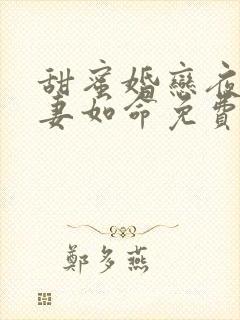 甜蜜婚戀夜
妻如命免費
鄭多燕